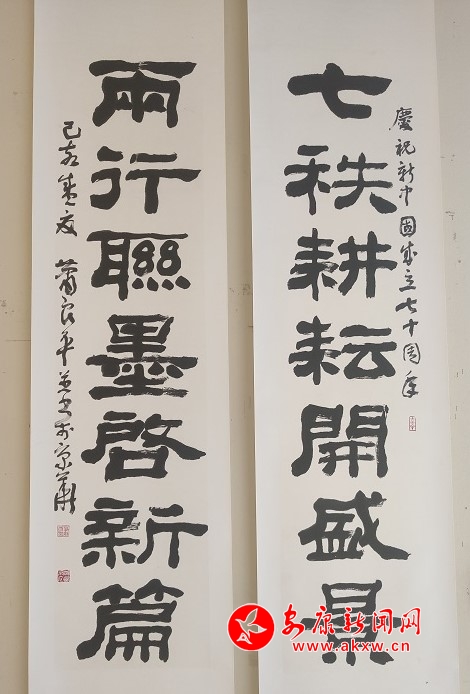 七秩耕耘開盛景
慶祝新中國成立七十周年
兩行聯墨啓新篇
己亥盛夏 蕭良平并书於京華
安康新闻网
www.akxw.cn